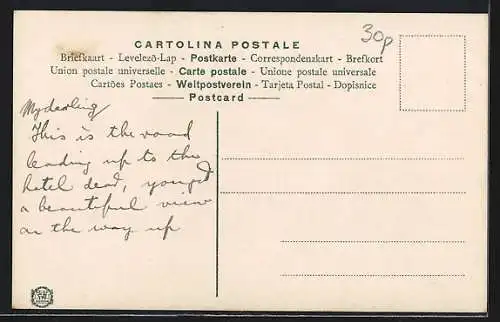 30p
CARTOLINA POSTALE
Briefkaart - Levelező-Lap - Postkarte - Correspondenzkart - Brefkort
Union postale universelle - Carte postale - Unione postale universale
Cartões Postaes - Weltpostverein - Tarjeta Postal - Dopisnice
Postcard
My darling
This is the road
leading up to the
hotel dear, you get
a beautiful view
on the way up